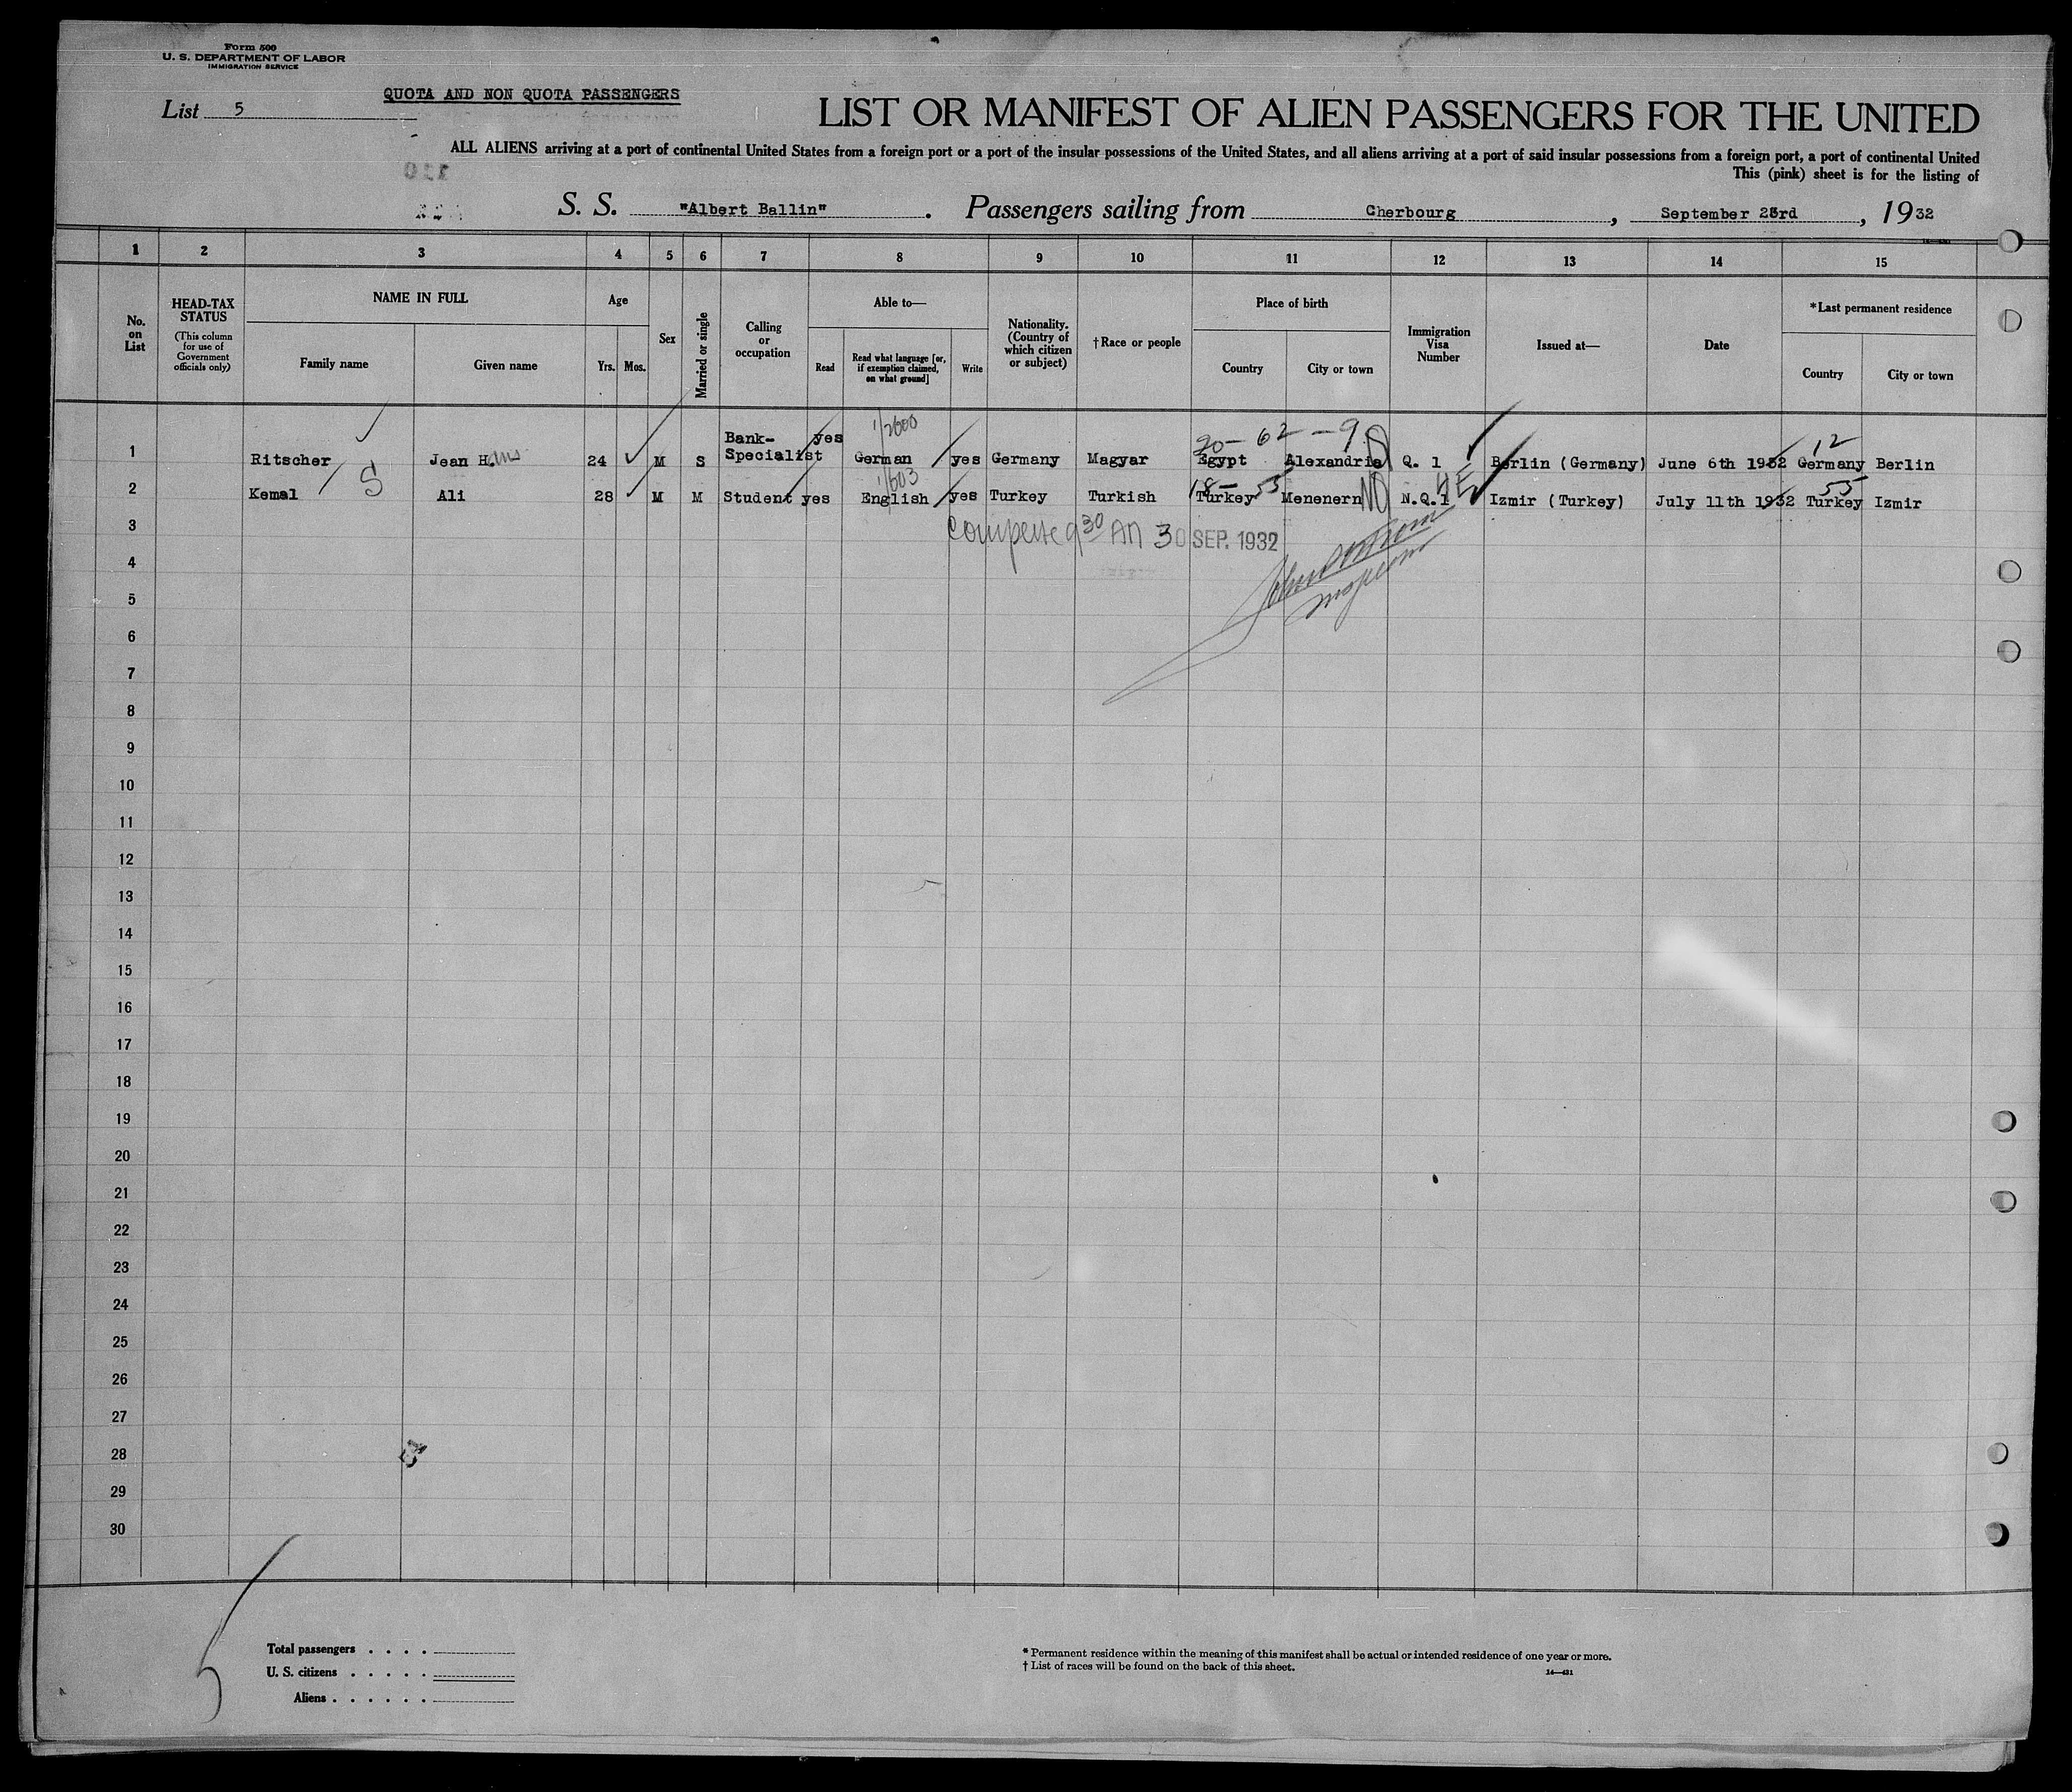 Form 500
U. S. DEPARTMENT OF LABOR
IMMIGRATION SERVICE
QUOTA AND NON QUOTA PASSENGERS
List 5
LIST OR MANIFEST OF ALIEN PASSENGERS FOR THE UNITED
ALL ALIENS arriving at a port of continental United States from a foreign port or a port of the insular possessions of the United States, and all aliens arriving at a port of said insular possessions from a foreign port, a port of continental United
This (pink) sheet is for the listing of
S. S. "Albert Ballin". Passengers sailing from Cherbourg, September 23rd, 1932
1 2 3 4 5 6 7 8 9 10 11 12 13 14 15
No. on List
HEAD-TAX STATUS
(This column for use of Government officials only)
NAME IN FULL
Family name Given name
Age
Yrs. Mos.
Sex
Married or single
Calling or occupation
Able to—
Read
Read what language [or, if exemption claimed, on what ground]
Write
Nationality. (Country of which citizen or subject)
†Race or people
Place of birth
Country City or town
Immigration Visa Number
Issued at—
Date
*Last permanent residence
Country City or town
1/2600
20 - 62 - 9
12
1 Ritscher Jean H. 24 M S Bank-Specialist yes German yes Germany Magyar Egypt Alexandria Q. 1 Berlin (Germany) June 6th 1932 Germany Berlin
S
1/603
18 - 55
NO
55
2 Kemal Ali 28 M M Student yes English yes Turkey Turkish Turkey Menenern N.Q.1 Izmir (Turkey) July 11th 1932 Turkey Izmir
3
9 30 AM 30 SEP. 1932
4
5
6
7
8
9
10
11
12
13
14
15
16
17
18
19
20
21
22
23
24
25
26
27
28
29
30
Total passengers . . . .
U. S. citizens . . . . .
Aliens . . . . . .
* Permanent residence within the meaning of this manifest shall be actual or intended residence of one year or more.
† List of races will be found on the back of this sheet.
14—431